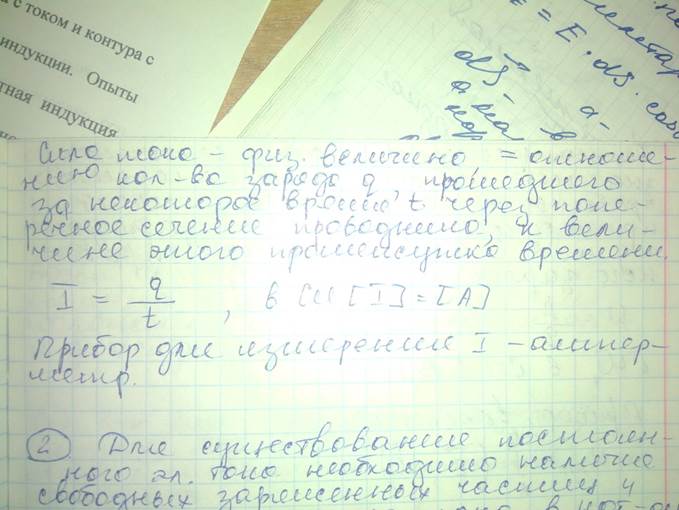 с током и контура с
индукции. Опыты
тная индукция
= E · ds · cos
ds -
Сила тока - физ. величина = отноше-
нию кол-ва заряда q, прошедшего
за некоторое время t через попе-
речное сечение проводника, к вели-
чине этого промежутка времени.
I = q/t , в СИ [I] = [A]
Прибор для измерения I - ампер-
метр.
2 Для существования постоян-
ного эл. тока необходимо наличие
свободных заряженных частиц и